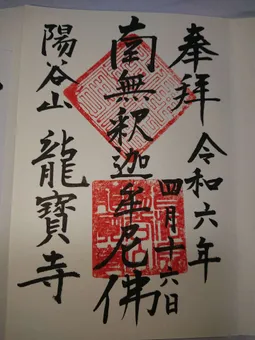 奉拝
令和六年
四月十六日
南無釈迦牟尼佛
陽谷山
龍寶寺